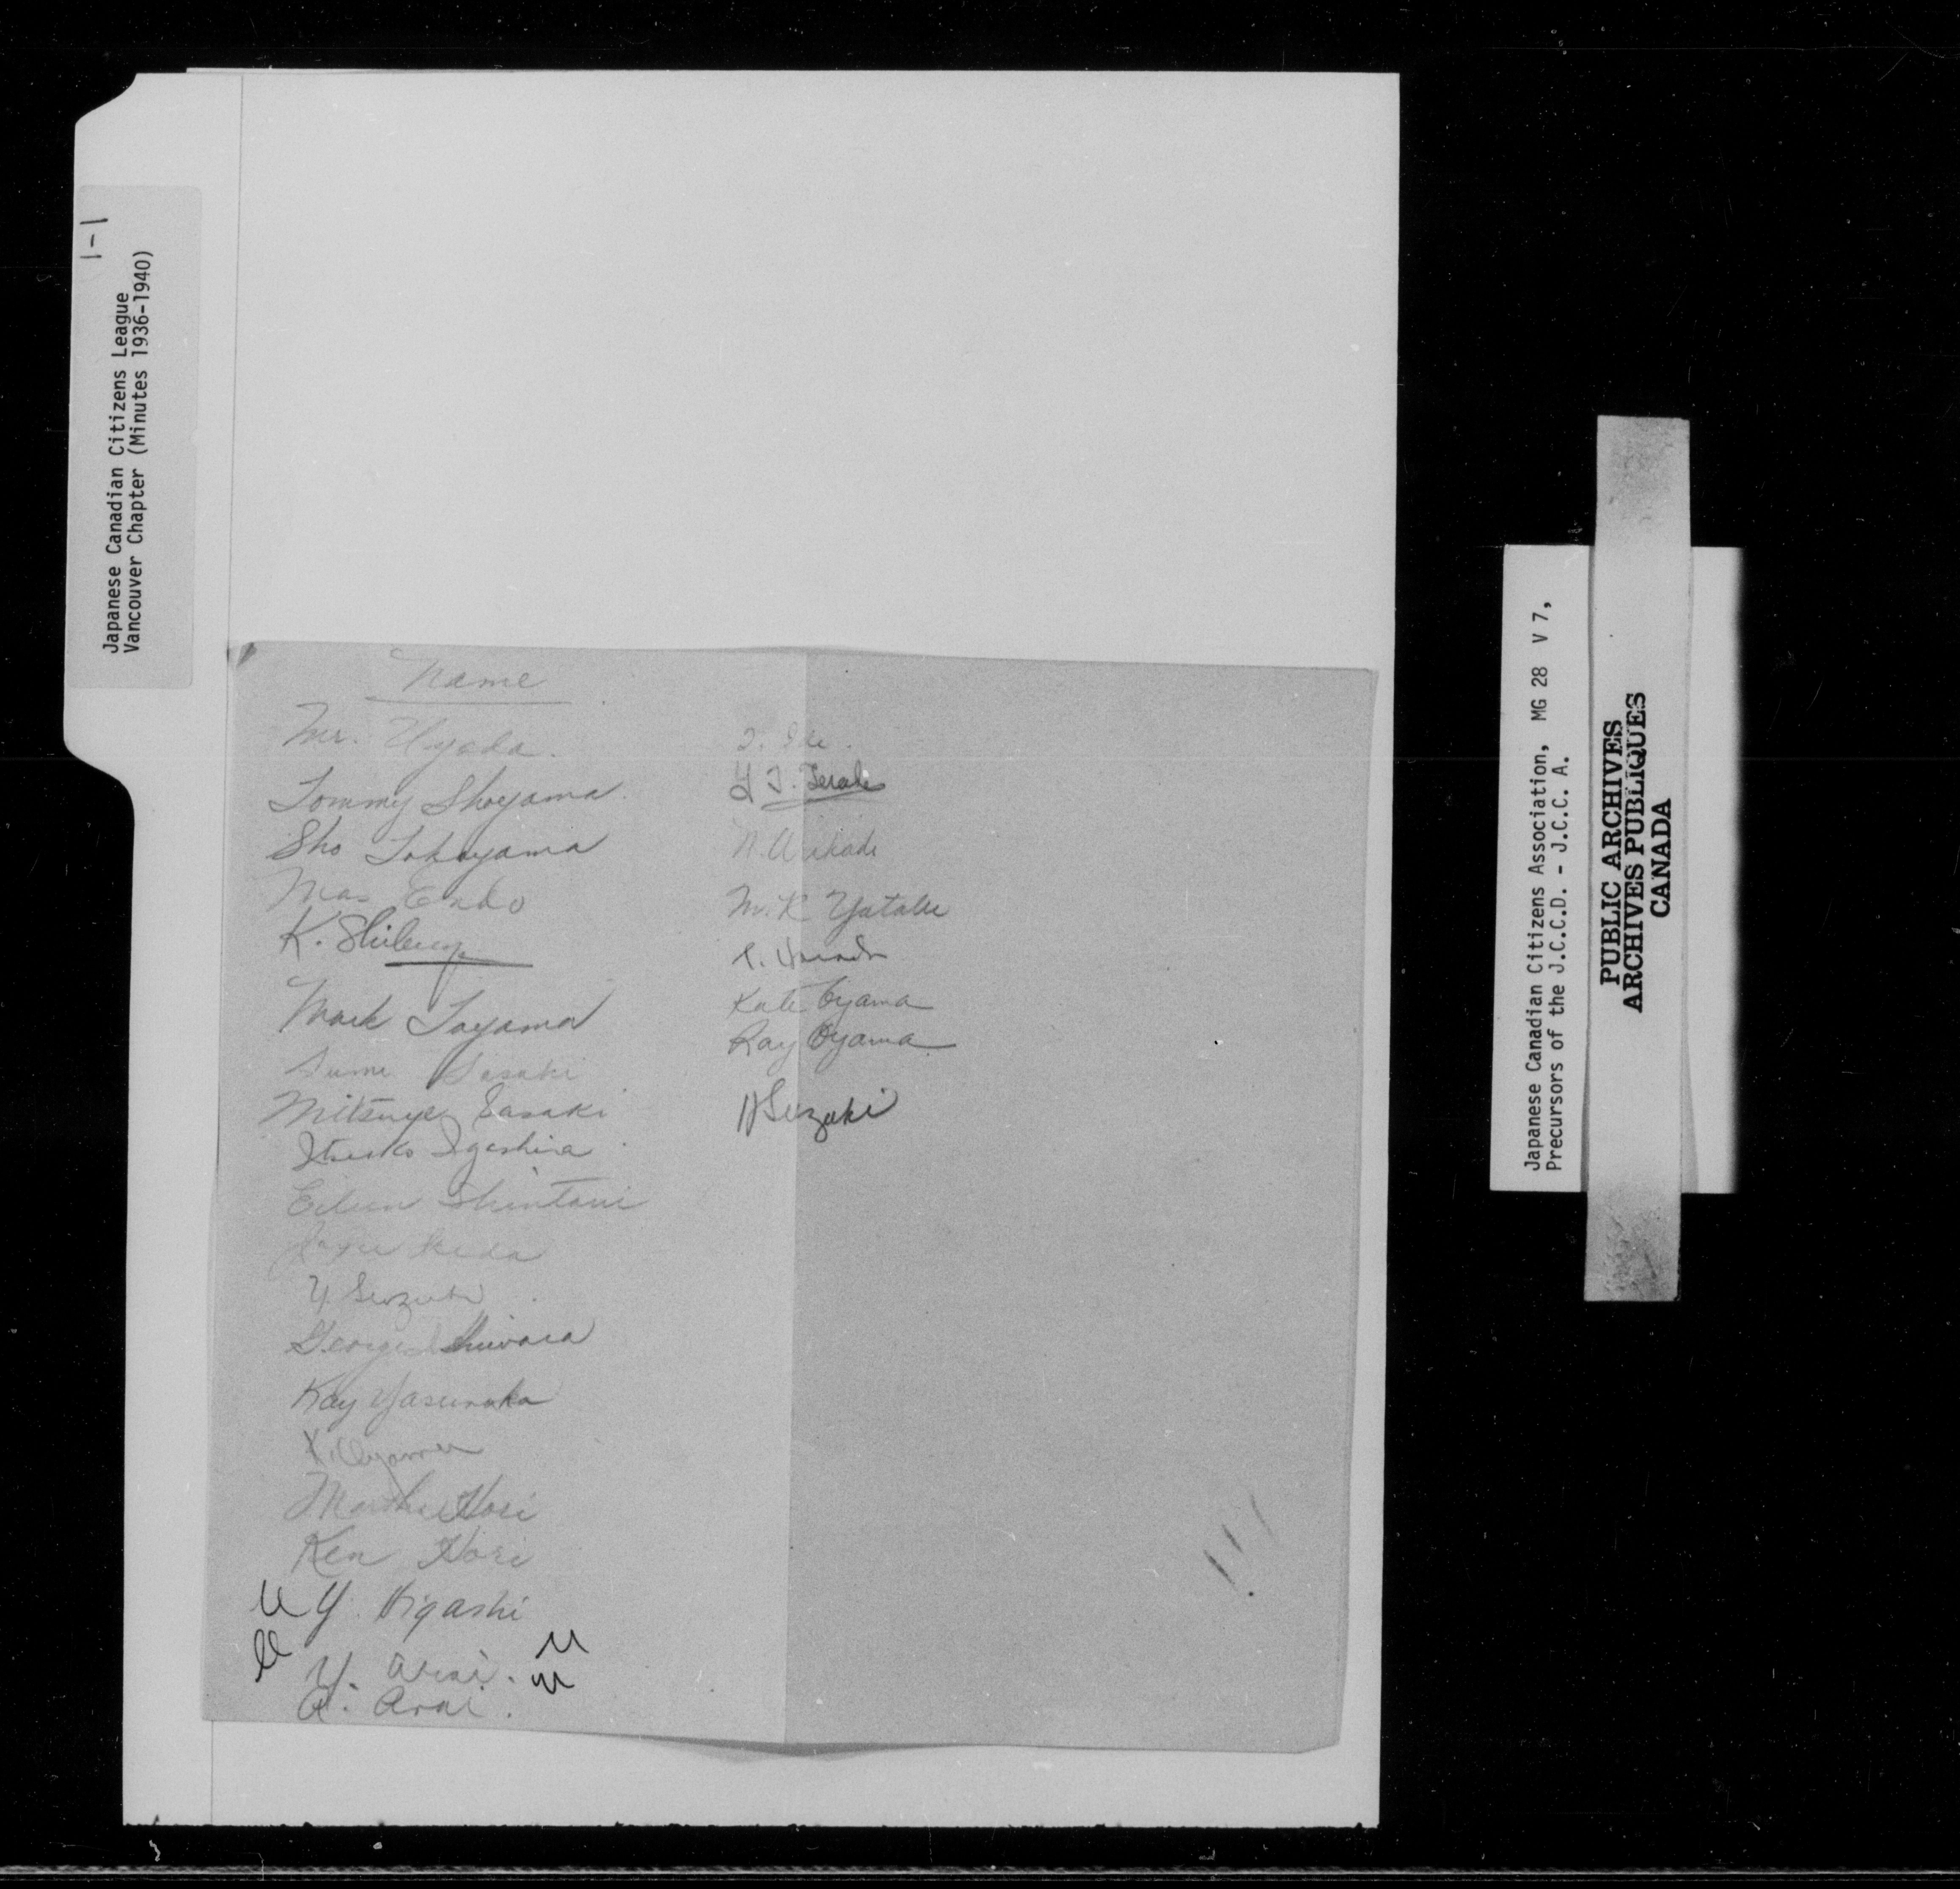 1-1
Japanese Canadian Citizens League
Vancouver Chapter (Minutes 1936-1940)
Name
Mr. Uyeda.
Tommy Shoyama
Sho Tokoyama
Mas Endo
K.
Mark Toyama
Sumi Sasaki
Mitsuye Sasaki
Igashira
Eileen Shintani
Ikeda
Y. Suzuki
George Ishiwara
Kay Yasunaka
K. Oyama
Martha Hori
Ken Hori
Y. Higashi
Y. Arai.
A. Arai.
Y T.
M. K Yatabe
T. Harada
Kate Oyama
Ray Oyama
H Suzuki
Japanese Canadian Citizens Association, MG 28 V 7,
Precursors of the J.C.C.D. - J.C.C. A.
PUBLIC ARCHIVES
ARCHIVES PUBLIQUES
CANADA